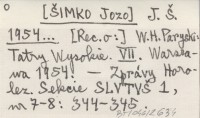 o [ŠIMKO Jozo] J. Š.
1954... [Rec. o:] W.H. Paryski:
Tatry Wysokie. VII. Warsza-
wa 1954 — Zprávy Horo-
lez. Sekcie SLVTVŠ 1,
nr 7-8: 344-345.